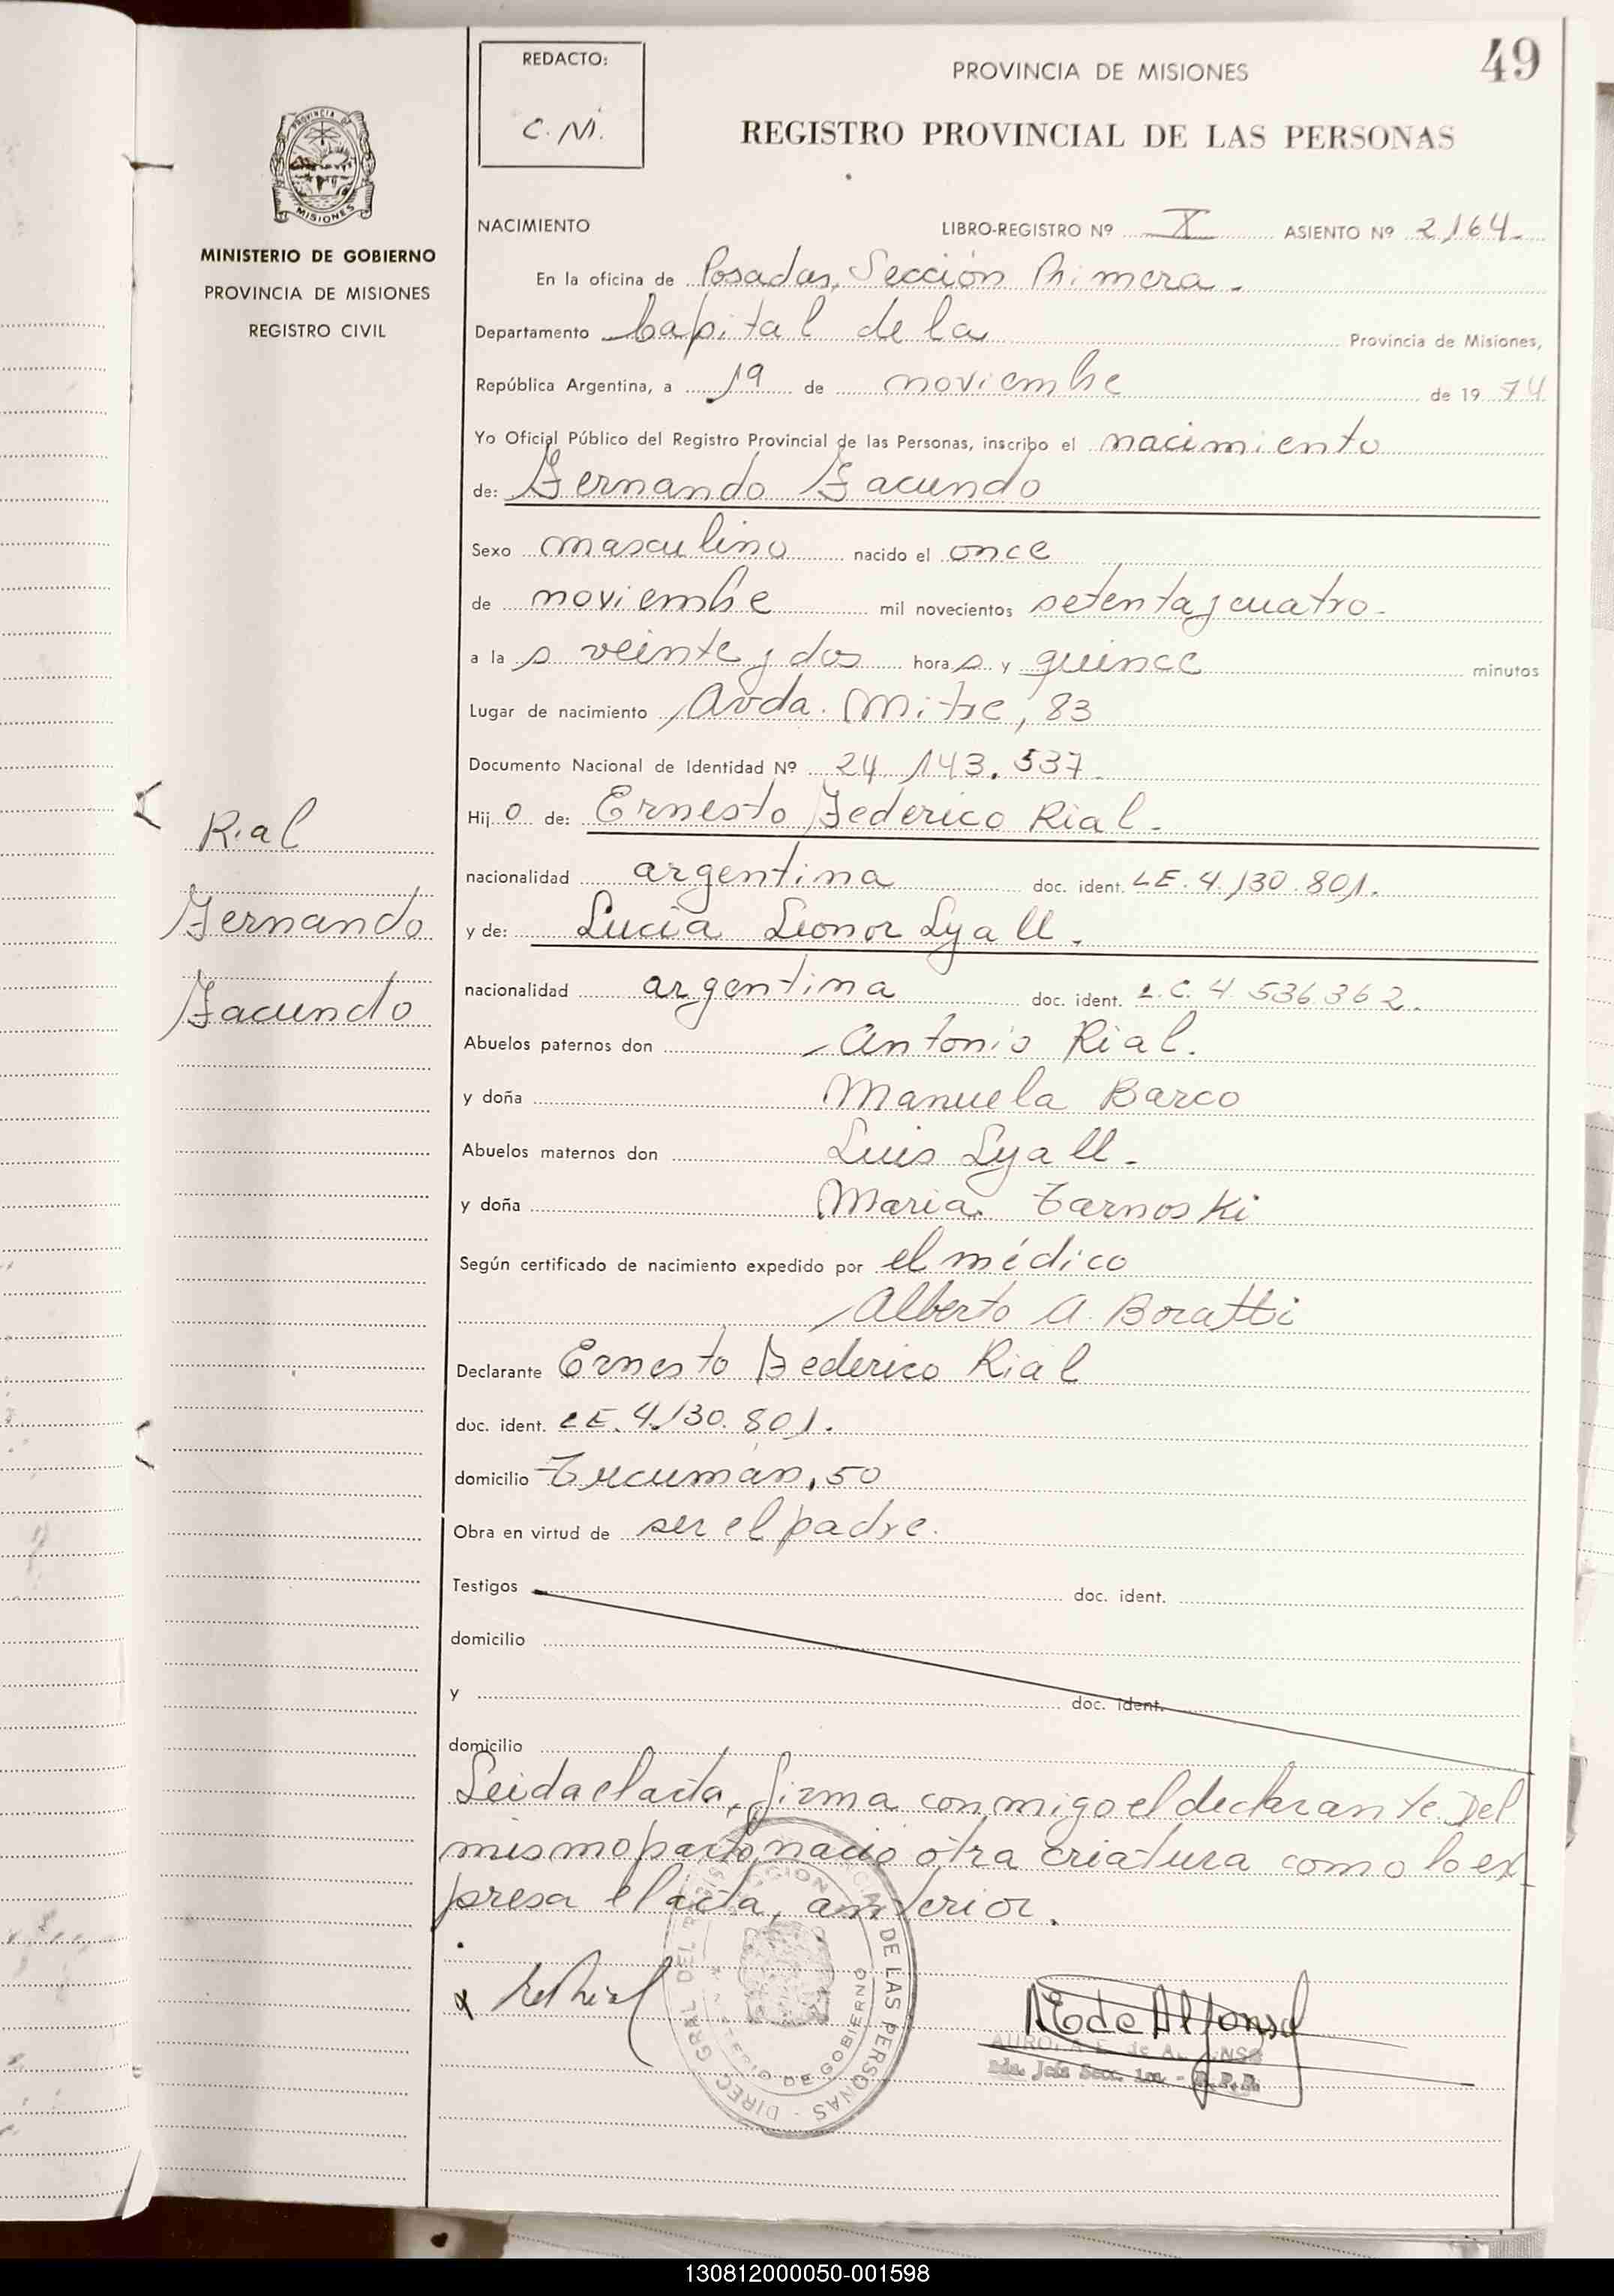 49
REDACTO:
C. M.
PROVINCIA DE MISIONES
REGISTRO PROVINCIAL DE LAS PERSONAS
PROVINCIA DE
MISIONES
MINISTERIO DE GOBIERNO
PROVINCIA DE MISIONES
REGISTRO CIVIL
NACIMIENTO LIBRO-REGISTRO Nº X ASIENTO Nº 2164-
En la oficina de Posadas, Sección Primera -
Departamento Capital de la Provincia de Misiones,
República Argentina, a 19 de noviembre de 19 74
Yo Oficial Público del Registro Provincial de las Personas, inscribo el nacimiento
de: Fernando Facundo
Sexo masculino nacido el once
de noviembre mil novecientos setenta y cuatro -
a la s veinte y dos hora s y quince minutos
Lugar de nacimiento Avda. Mitre, 83
Documento Nacional de Identidad Nº 24 143. 537
Hij o de: Ernesto Federico Rial -
nacionalidad argentina doc. ident. LE. 4.130.801.
y de: Lucia Leonor Lyall.
nacionalidad argentina doc. ident. L.C. 4 536 362.
Abuelos paternos don Antonio Rial.
y doña Manuela Barco
Abuelos maternos don Luis Lyall -
y doña Maria Tarnoski
Según certificado de nacimiento expedido por el médico
Alberto A. Boratti
Declarante Ernesto Federico Rial
doc. ident. LE. 4.130.801.
domicilio Tucuman, 50
Obra en virtud de ser el padre.
Testigos doc. ident.
domicilio
y doc. ident.
domicilio
Leida el acta, firma conmigo el declarante. Del
mismo parto nació otra criatura como lo ex
presa el acta, anterior.
Rial
Fernando
Facundo
DE LAS PERSONAS - DIREC. GRAL. DEL
DE GOBIERNO
E de Alfonso
Jefa Secc. 1ra. - R.P.P.
130812000050-001598